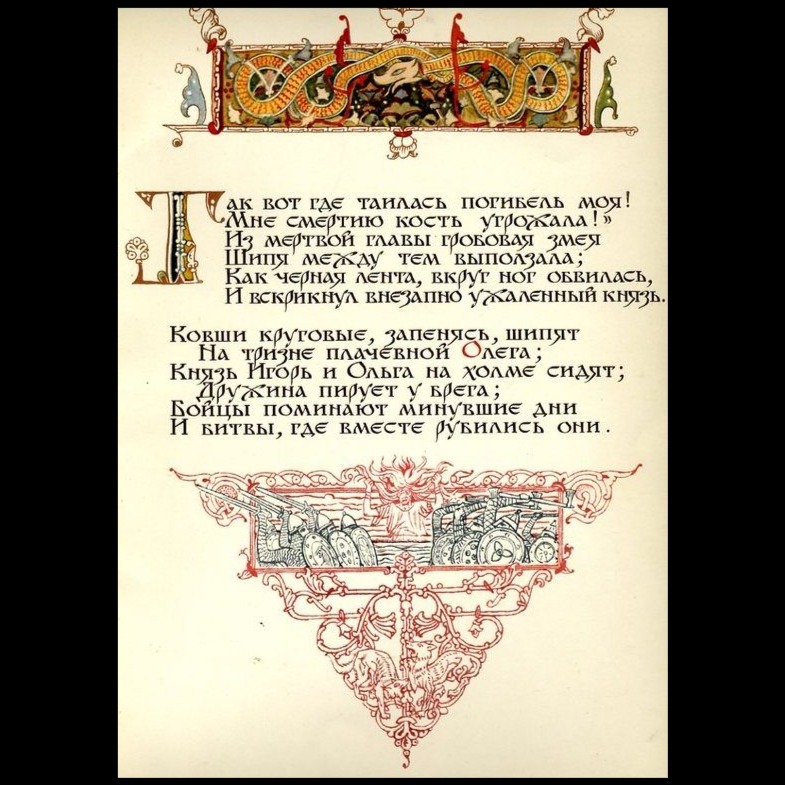 Так вот где таилась погибель моя!
Мне смертию кость угрожала!»
Из мертвой главы гробовая змея
Шипя между тем выползала;
Как черная лента, вкруг ног обвилась,
И вскрикнул внезапно ужаленный князь.
Ковши круговые, запенясь, шипят
На тризне плачевной Олега;
Князь Игорь и Ольга на холме сидят;
Дружина пирует у брега;
Бойцы поминают минувшие дни
И битвы, где вместе рубились они.